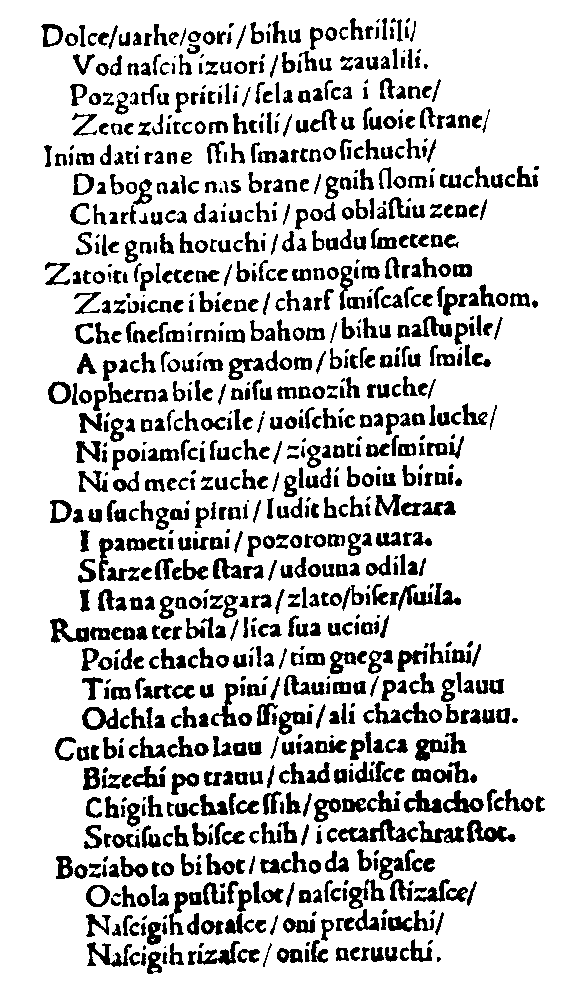 Dolce/uarhe/gori/bihu pochrilili/
Vod naſcih izuori/bihu zaualili.
Pozgatſu pritili/ſela naſca i ſtane/
Zene zditcom htili/ueſt u ſuoie ſtrane/
Inim dati rane ſſih ſmartno ſichuchi/
Da bog nalc nas brane/gnih ſlomi tuchuchi
Charſauca daiuchi/pod oblaſtiu zene/
Sile gnih hotuchi/da budu ſmetene.
Zatoiti ſpletene/biſce mnogim ſtrahom
Zazbicne i biene/charſ ſmiſcaſce ſprahom.
Che ſneſmirnim bahom/bihu naſtupile/
A pach ſouim gradom/bitſe niſu ſmile.
Olopherna bile/niſu mnozih ruche/
Niga naſchocile/uoiſchie napan luche/
Ni poiamſci ſuche/ziganti neſmirni/
Ni od meci zuche/gludi boiu birni.
Da u ſuchgni pirni/Iudit hchi Merara
I pameti uirni/pozoromga uara.
Sfarze ſſebe ſtara/udouna odila/
I ſtana gnoizgara/zlato/biſer/ſuila.
Rumena ter bila/lica ſua ucini/
Poide chacho uila/tim gnega prihini/
Tim ſartce u pini/ſtauimu/pach glauu
Odchla chacho ſſigni/ali chacho brauu.
Cut bi chacho lauu/uianie placa gnih
Bizechi po trauu/chad uidiſce moih.
Chigih tuchaſce ſſih/gonechi chacho ſchot
Stotiſuch biſce chih/i cetarſtachrat ſtot.
Boziabo to bi hot/tacho da bigaſce
Ochola puſtiſ plot/naſcigih ſtizaſce/
Naſcigih doraſce/oni predaiuchi/
Naſcigih rizaſce/oniſe neruuchi.